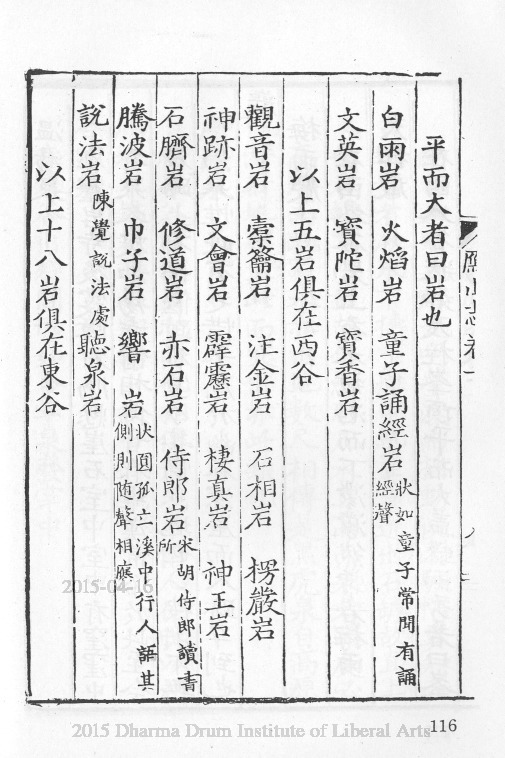 平而大者曰岩也
白雨岩 火熖岩 童子誦經岩 狀如童子常聞有誦經聲
文英岩 寳陀岩 寳香岩
以上五岩俱在西谷
觀音岩 橐籥岩 注金岩 石相岩 楞嚴岩
神跡岩 文會岩 霹靂岩 棲真岩 神王岩
石臍岩 修道岩 赤石岩 侍郎岩 宋胡侍郎讀書所
騰波岩 巾子岩 響岩 状圓孤立溪中行人語其側則随聲相應
說法岩 陳覺說法處 聽泉岩
以上十八岩俱在東谷
2015-04-16
2015 Dharma Drum Institute of Liberal Arts
116